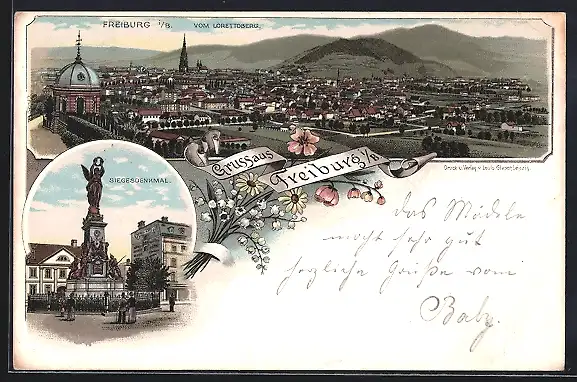 FREIBURG i/B. VOM LORETTOBERG.
SIEGESDENKMAL.
Gruss aus
Freiburg i/B.
Druck u. Verlag v. Louis Glaser Leipzig.
das Mädele
macht sehr gut
herzliche Grüße vom
Balz.